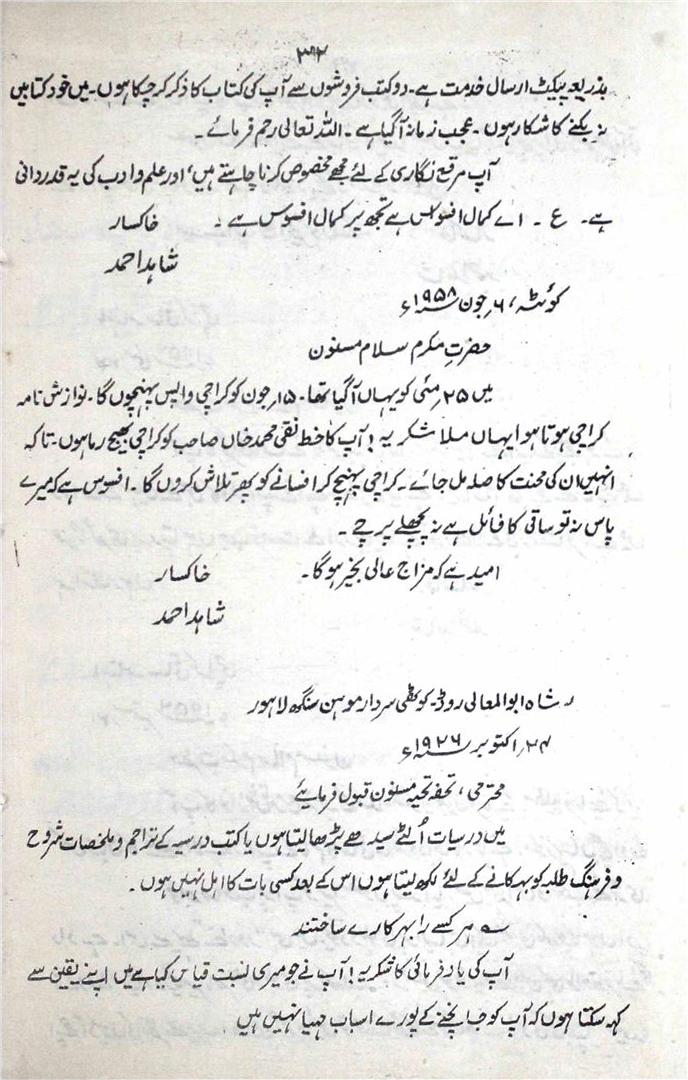 ۳۹۲
بذریعہ پیکیٹ ارسال خدمت ہے۔ دو کتب فروشوں سے آپ کی کتاب کا ذکر کر چکا ہوں۔ میں خود کتابیں
نہ بکنے کا شکار ہوں۔ عجب زمانہ آگیا ہے۔ اللہ تعالی رحم فرمائے۔
آپ مرقع نگاری کے لئے مجھے مخصوص کرنا چاہتے ہیں، اور علم و ادب کی یہ قدردانی
ہے۔ ع ۔ اے کمال افسوس ہے تجھ پر کمال افسوس ہے ۔ خاکسار
شاہد احمد
کوئٹہ، ۶؍ جون ۱۹۵۸ء
حضرتِ مکرم سلام مسنون
میں ۲۵ مئی کو یہاں آگیا تھا۔ ۱۵؍ جون کو کراچی واپس پہنچوں گا۔ نوازش نامہ
کراچی ہوتا ہوا یہاں ملا شکریہ! آپ کا خط نقی محمد خاں صاحب کو کراچی بھیج رہا ہوں۔ تاکہ
انہیں ان کی محنت کا صلہ مل جائے۔ کراچی پہنچ کر افسانے کو پھر تلاش کروں گا۔ افسوس ہے کہ میرے
پاس نہ تو ساقی کا فائل ہے نہ پچھلے پرچے۔
امید ہے کہ مزاج عالی بخیر ہوگا۔ خاکسار
شاہد احمد
شاہ ابوالمعالی روڈ۔ کوٹھی سردار موہن سنگھ لاہور
۲۴؍ اکتوبر ۱۹۲۶ء
محترمی، تحفہ تحیہ مسنون قبول فرمایئے
میں درسیات اُلٹے سیدھے پڑھا لیتا ہوں یا کتب درسیہ کے تراجم و ملخصات شروح
و فرہنگ طلبہ کو بہکانے کے لئے لکھ لیتا ہوں اس کے بعد کسی بات کا اہل نہیں ہوں۔
؎ ہر کسے را بہر کارے ساختند
آپ کی یاد فرمائی کا شکریہ! آپ نے جو میری نسبت قیاس کیا ہے میں اپنے یقین سے
کہہ سکتا ہوں کہ آپ کو جانچنے کے پورے اسباب مہیا نہیں ہیں